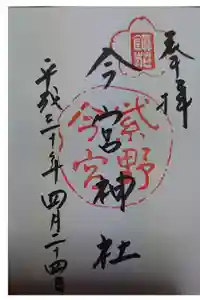 奉拝
今宮神社
紫野
今宮
平成三十年四月二十四日